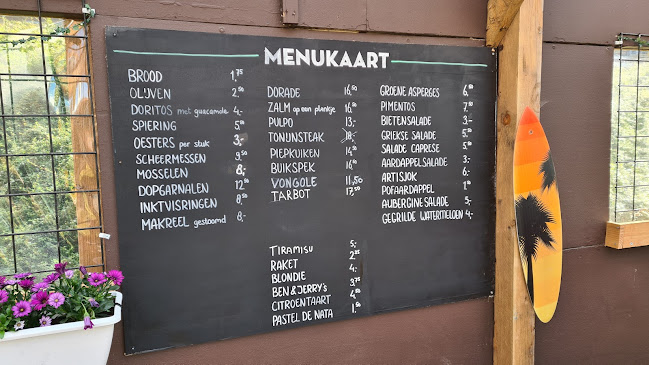 MENUKAART
BROOD 1,75
OLIJVEN 2,50
DORITOS met guacamole 4,-
SPIERING 5,00
OESTERS per stuk 3,-
SCHEERMESSEN 9,50
MOSSELEN 8,-
DOPGARNALEN 12,50
INKTVISRINGEN 8,50
MAKREEL gestoomd 8,-
DORADE 16,50
ZALM op een plankje 16,50
PULPO 13,-
TONIJNSTEAK 18,-
PIEPKUIKEN
BUIKSPEK
VONGOLE 11,50
TARBOT 17,50
GROENE ASPERGES
PIMENTOS
BIETENSALADE 3,-
GRIEKSE SALADE
SALADE CAPRESE
AARDAPPELSALADE 3,-
ARTISJOK 6,-
POFAARDAPPEL
AUBERGINE SALADE 5,-
GEGRILDE WATERMELOEN 4,-
TIRAMISU 5,-
RAKET
BLONDIE 4,-
BEN & JERRY's 3,75
CITROENTAART
PASTEL DE NATA